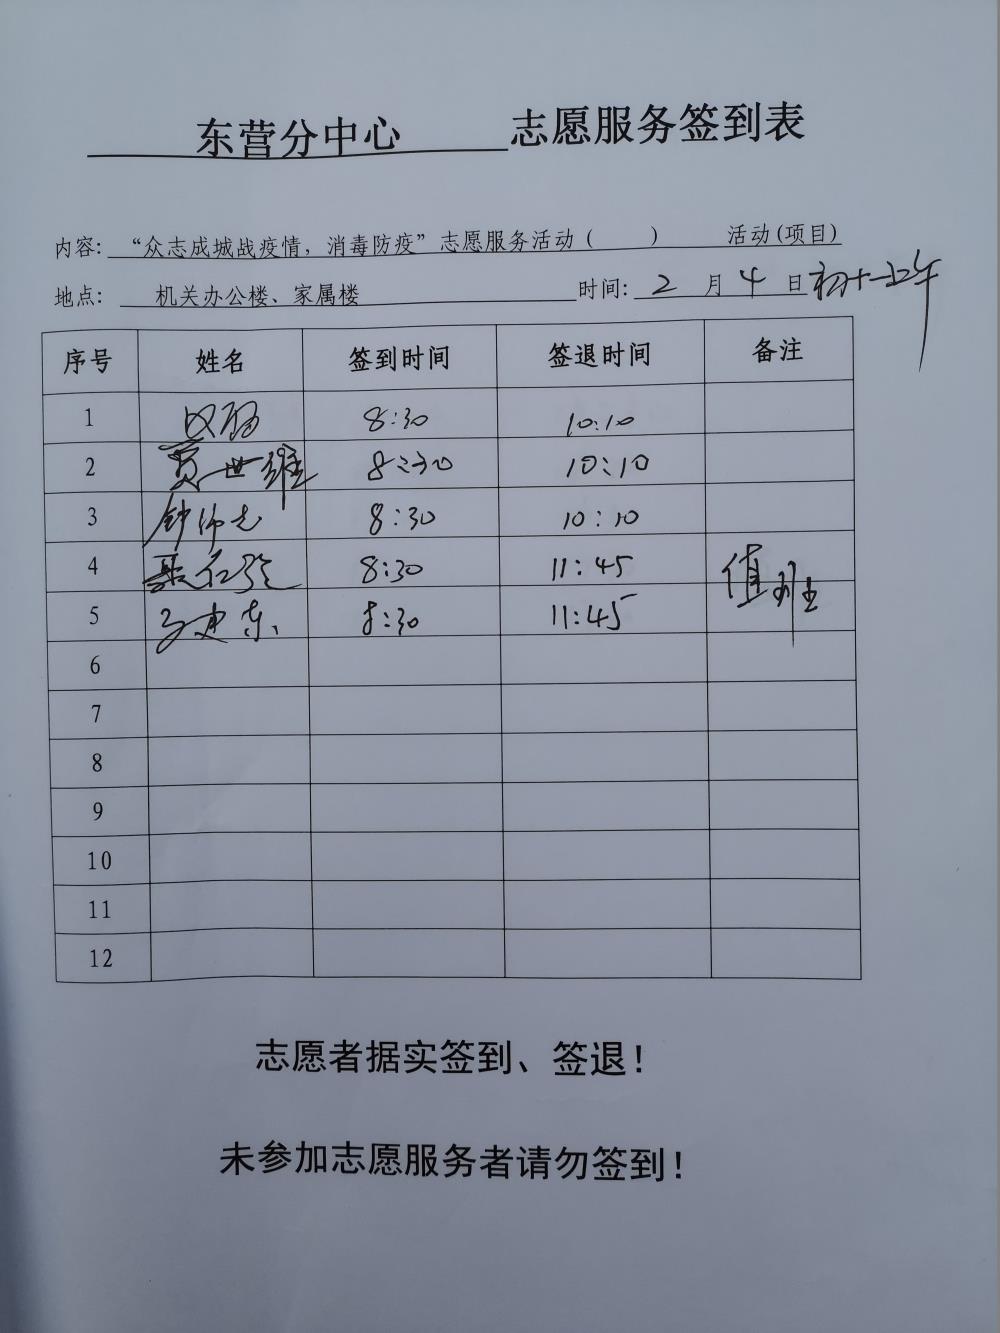 东营分中心 志愿服务签到表
内容: “众志成城战疫情，消毒防疫”志愿服务活动 ( ) 活动(项目)
地点: 机关办公楼、家属楼 时间: 2 月 4 日 初十一上午
序号 姓名 签到时间 签退时间 备注
1 8:30 10:10
2 贾世维 8:30 10:10
3 8:30 10:10
4 8:30 11:45 值班
5 8:30 11:45
6
7
8
9
10
11
12
志愿者据实签到、签退！
未参加志愿服务者请勿签到！